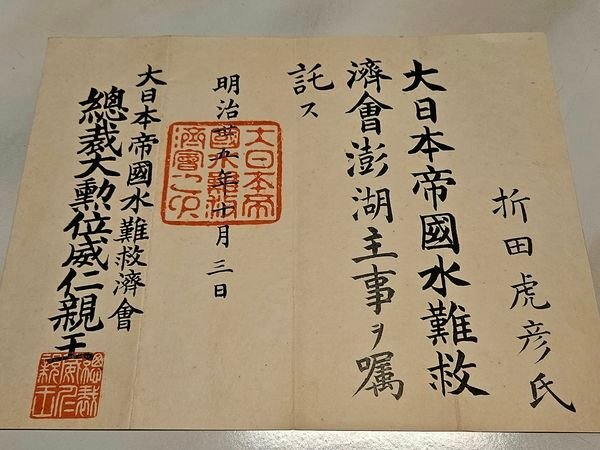 折田虎彦氏
大日本帝國水難救
濟會澎湖主事ヲ囑
託ス
明治卅五年十月三日
大日本帝國水難救濟會
總裁大勲位威仁親王
大日本帝
國水難救
濟會之印
總裁
威仁
親王